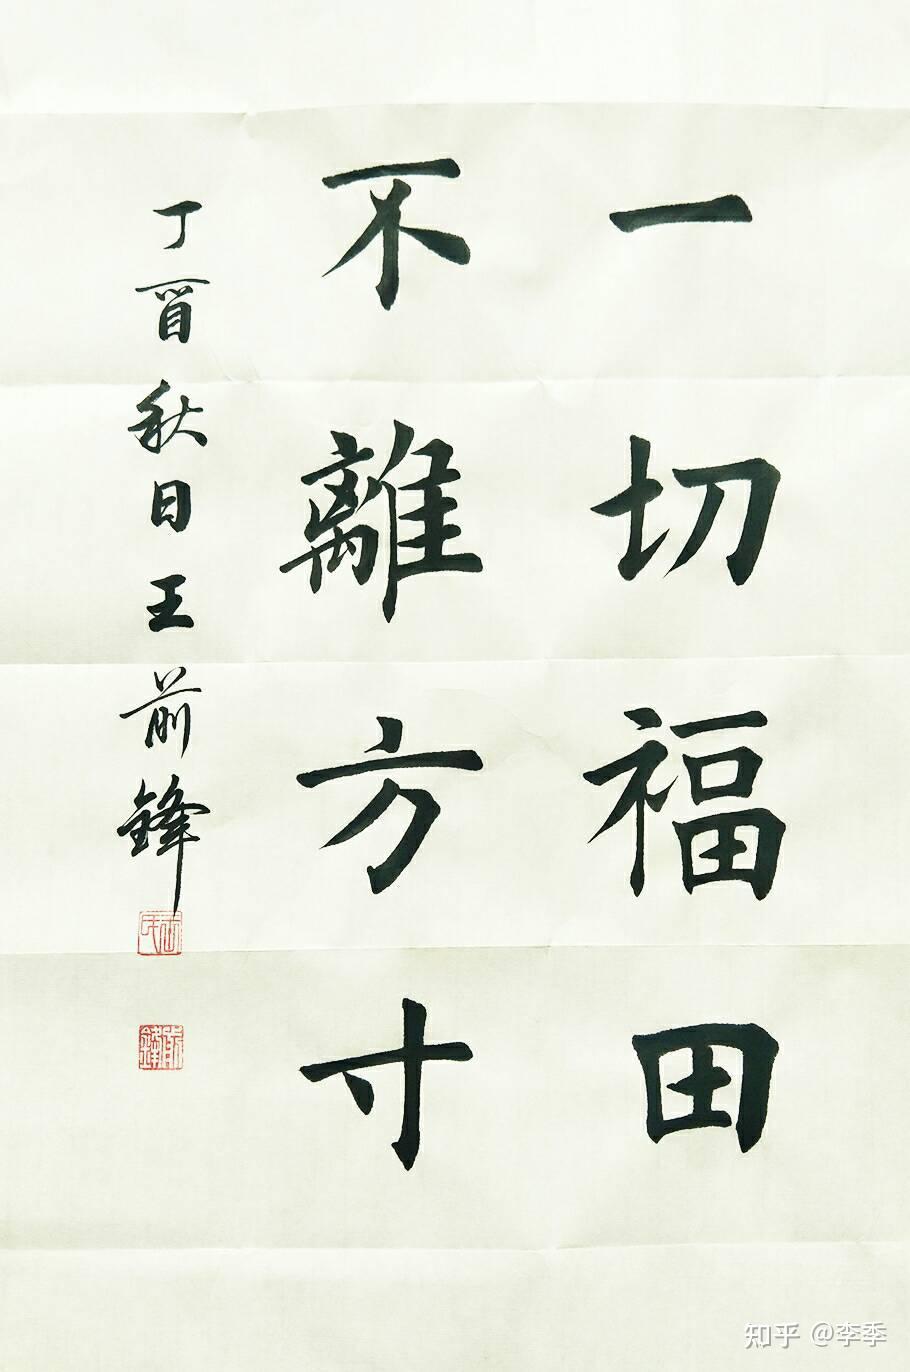 一切福田
不離方寸
丁酉秋日王前鋒
王氏
前鋒
知乎 @李季